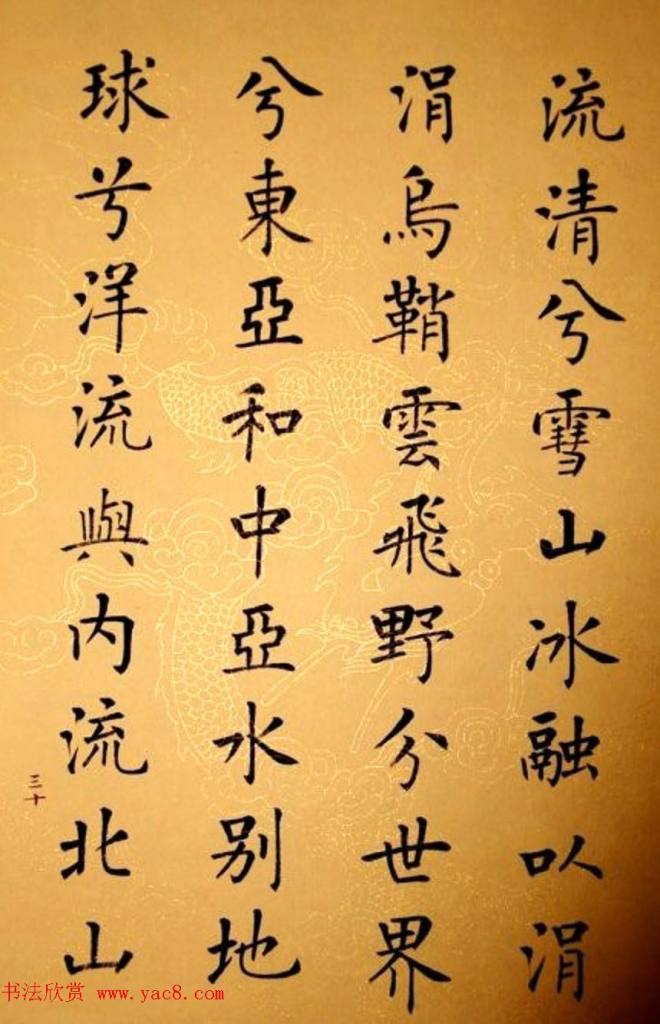 流清兮雪山冰融以涓
涓烏鞘雲飛野分世界
兮東亞和中亞水別地
球兮洋流與内流北山
三十
书法欣赏 www.yac8.com